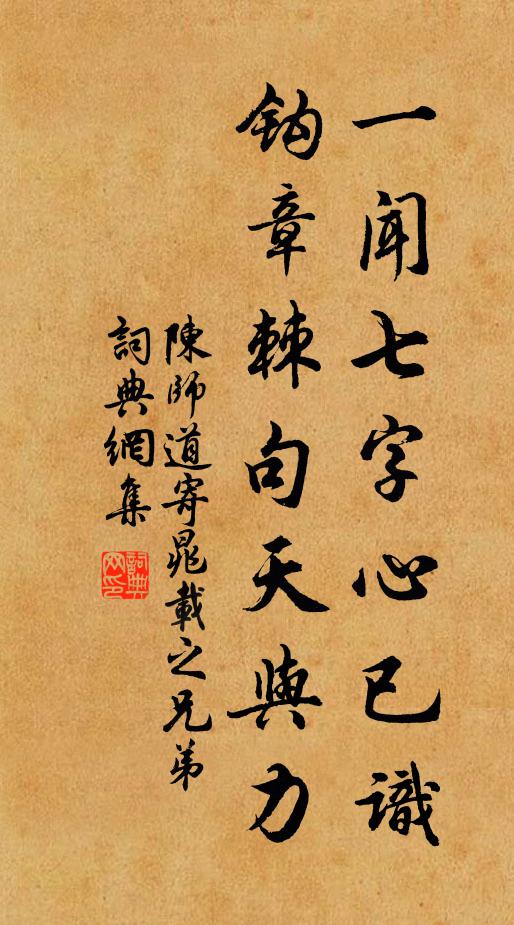 一聞七字心已識
鈎章棘句天與力
陳師道寄晁載之兄弟
詞典網集
詞典網印